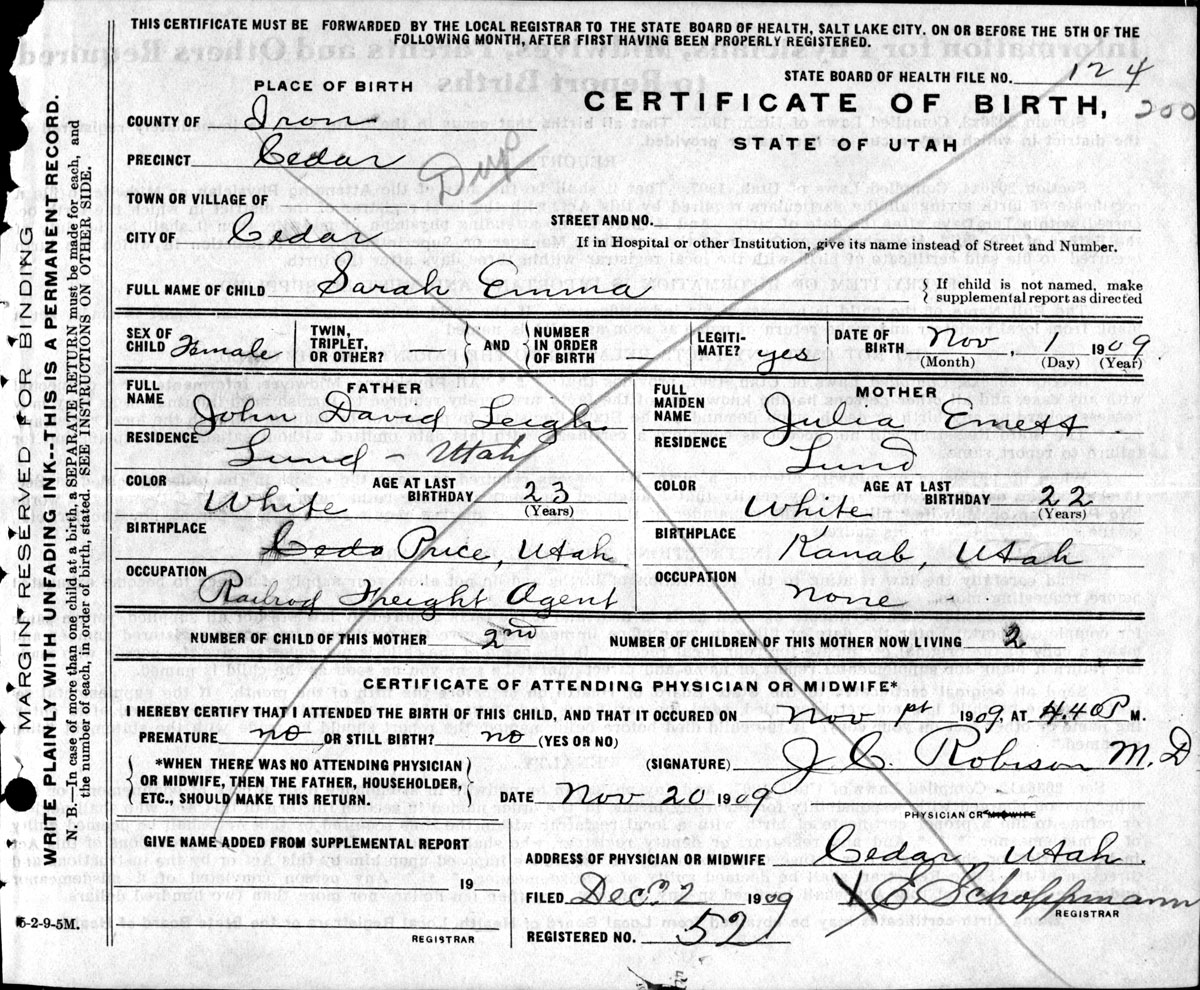 THIS CERTIFICATE MUST BE FORWARDED BY THE LOCAL REGISTRAR TO THE STATE BOARD OF HEALTH, SALT LAKE CITY, ON OR BEFORE THE 5TH OF THE
FOLLOWING MONTH, AFTER FIRST HAVING BEEN PROPERLY REGISTERED.
STATE BOARD OF HEALTH FILE NO. 124
PLACE OF BIRTH
CERTIFICATE OF BIRTH, 200
COUNTY OF Iron
STATE OF UTAH
PRECINCT Cedar
Dup
TOWN OR VILLAGE OF
STREET AND NO.
CITY OF Cedar
If in Hospital or other Institution, give its name instead of Street and Number.
FULL NAME OF CHILD Sarah Emma
{ If child is not named, make
supplemental report as directed
SEX OF CHILD Female
TWIN, TRIPLET, OR OTHER? } AND { NUMBER IN ORDER OF BIRTH
LEGITI-MATE? yes
DATE OF BIRTH Nov, 1 1909
(Month) (Day) (Year)
FATHER
FULL NAME John David Leigh
RESIDENCE Lund - Utah
COLOR White AGE AT LAST BIRTHDAY 23
(Years)
BIRTHPLACE Price, Utah
OCCUPATION Railrod Freight Agent
MOTHER
FULL MAIDEN NAME Julia Emett
RESIDENCE Lund
COLOR White AGE AT LAST BIRTHDAY 22
(Years)
BIRTHPLACE Kanab, Utah
OCCUPATION None
NUMBER OF CHILD OF THIS MOTHER 2nd NUMBER OF CHILDREN OF THIS MOTHER NOW LIVING 2
CERTIFICATE OF ATTENDING PHYSICIAN OR MIDWIFE*
I HEREBY CERTIFY THAT I ATTENDED THE BIRTH OF THIS CHILD, AND THAT IT OCCURED ON Nov 1909, AT 4.40 P M.
PREMATURE no OR STILL BIRTH? no (YES OR NO)
(SIGNATURE) J. C. Robison M. D
{ *WHEN THERE WAS NO ATTENDING PHYSICIAN
OR MIDWIFE, THEN THE FATHER, HOUSEHOLDER,
ETC., SHOULD MAKE THIS RETURN. }
DATE Nov. 20 1909
PHYSICIAN OR MIDWIFE
GIVE NAME ADDED FROM SUPPLEMENTAL REPORT
ADDRESS OF PHYSICIAN OR MIDWIFE Cedar Utah
19
FILED Dec 2 1909 E. Schoppmann
REGISTRAR
5-2-9-5M.
REGISTRAR
REGISTERED NO. 52
MARGIN RESERVED FOR BINDING
WRITE PLAINLY WITH UNFADING INK--THIS IS A PERMANENT RECORD.
N. B.—In case of more than one child at a birth, a SEPARATE RETURN must be made for each, and
the number of each, in order of birth, stated. SEE INSTRUCTIONS ON OTHER SIDE.